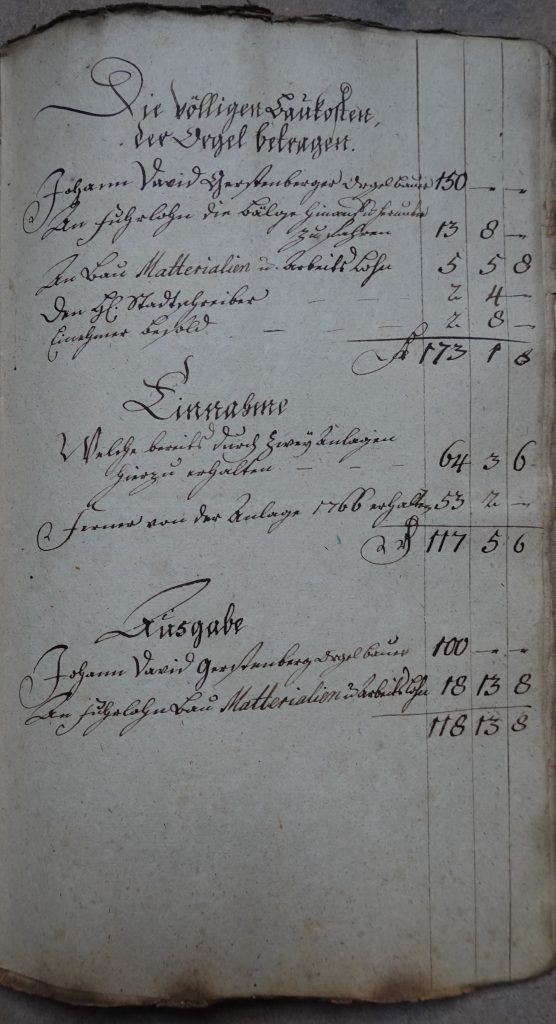 Die völligen Baukosten,
der Orgel betragen.
Johann David Gerstenberger Orgelbauer 150 — —
An Fuhrlohn die Bälge hinauf u. herunter
zu fahren 13 8 —
An Bau Matterialien u. Arbeits Lohn 5 5 8
Den H. Stadtschreiber — — 2 4 —
Einehmer Bedold — — — — 2 8 —
173 1 8
Einnahme
Welche bereits durch Zwey Anlagen
hierzu erhalten — — — 64 3 6
Ferner von der Anlage 1766 erhalten 53 2 —
117 5 6
Ausgabe
Johann David Gerstenberg Orgelbauer 100 — —
An Fuhrlohn Bau Matterialien u. Arbeits Lohn 18 13 8
118 13 8